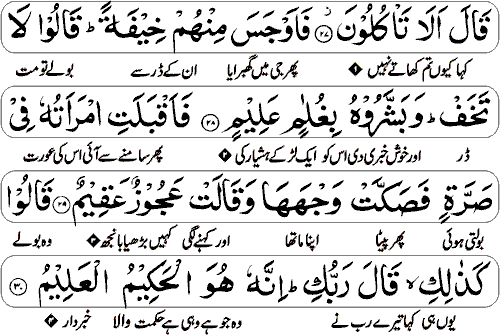 قَالَ اَلَا تَاْكُلُوْنَ ۝۲۷ فَاَوْجَسَ مِنْهُمْ خِيْفَةً ؕ قَالُوْا لَا
کہا کیوں تم کھاتے نہیں ۱ پھر جی میں گھبرایا ان کے ڈر سے بولے تو مت
تَخَفْ ؕ وَبَشَّرُوْهُ بِغُلٰمٍ عَلِيْمٍ ۝۲۸ فَاَقْبَلَتِ امْرَاَتُهٗ فِيْ
ڈر اور خوش خبری دی اس کو ایک لڑکے ہشیار کی ۲ پھر سامنے سے آئی اس کی عورت
صَرَّةٍ فَصَكَّتْ وَجْهَهَا وَقَالَتْ عَجُوْزٌ عَقِيْمٌ ۝۲۹ قَالُوْا
بولتی ہوئی پھر پیٹا اپنا ماتھا اور کہنے لگی کہیں بڑھیا بانجھ ۳ وہ بولے
كَذٰلِكِ ۙ قَالَ رَبُّكِ ؕ اِنَّهٗ هُوَ الْحَكِيْمُ الْعَلِيْمُ ۝۳۰
یوں ہی کہا تیرے رب نے وہ جو ہے وہی ہے حکمت والا خبردار ۴